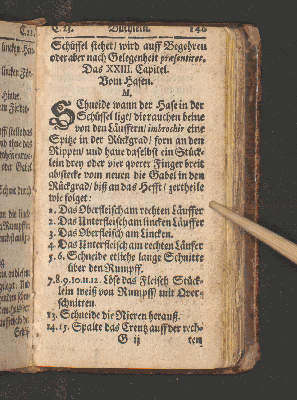 C. 23. Büchlein. 140
Schüssel stehet/ wird auff Begehren
oder aber nach Gelegenheit præsentiret.
Das XXIII. Capitel.
Vom Hasen.
M.
Schneide wann der Hase in der
Schüssel ligt/ die rauchen beine
von den Läuffern/ imbrochir eine
Spitze in der Rückgrad/ forn an den
Rippen/ und haue daselbst ein Stück-
lein drey oder vier qverer Finger breit
ab/stecke vom neuen die Gabel in den
Rückgrad/ biß an das Hefft/ zertheile
wie folget:
1. Das Oberfleisch am rechten Läuffer
2. Das Unterfleisch am lincken Läuffer
3. Das Oberfleisch am Lincken.
4. Das Unterfleisch am rechten Läuffer
5. 6. Schneide etliche lange Schnitte
über den Rumpff.
7.8.9.10.11.12. Löse das Fleisch Stück-
lein weiß von Rumpff/ mit Qver-
schnitten.
13. Schneide die Nieren herauß.
14. 15. Spalte das Creutz auff der rech-
G ij ten